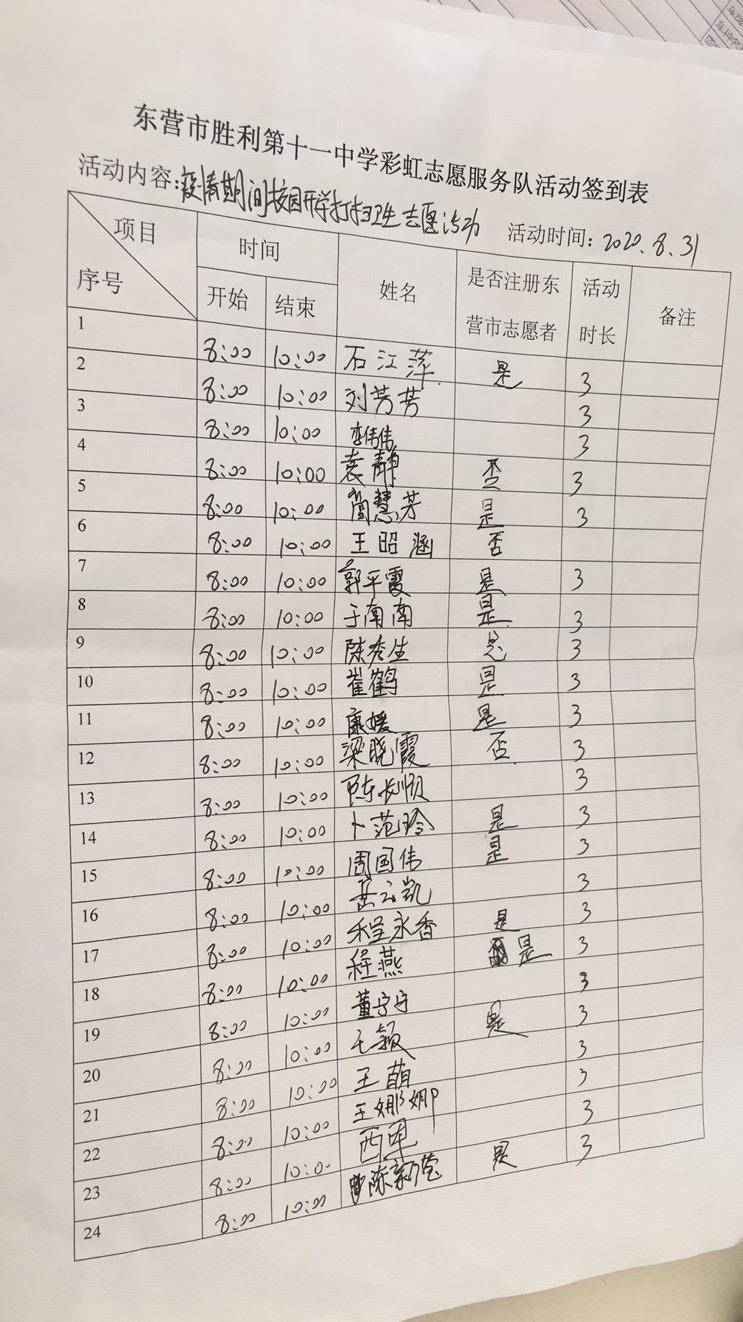 东营市胜利第十一中学彩虹志愿服务队活动签到表
活动内容:疫情期间校园开学打扫卫生志愿活动 活动时间:2020.8.31
项目 序号 时间 姓名 是否注册东营市志愿者 活动时长 备注
开始 结束
1 8:00 10:00 石江萍 是 3
2 8:00 10:00 刘芳芳 3
3 8:00 10:00 李伟伟 3
4 8:00 10:00 袁静 否 3
5 8:00 10:00 蔄慧芳 是 3
6 8:00 10:00 王昭涵 否
7 8:00 10:00 郭平霞 是 3
8 8:00 10:00 于南南 是 3
9 8:00 10:00 陈秀生 3
10 8:00 10:00 崔鹤 是 3
11 8:00 10:00 康媛 是 3
12 8:00 10:00 梁晓霞 否 3
13 8:00 10:00 陈长顺 3
14 8:00 10:00 卜范玲 是 3
15 8:00 10:00 周国伟 是 3
16 8:00 10:00 云凯 3
17 8:00 10:00 程永香 是 3
18 8:00 10:00 程燕 是 3
19 8:00 10:00 董宁宁 3
20 8:00 10:00 王颖 是 3
21 8:00 10:00 王萌 3
22 8:00 10:00 王娜娜 3
23 8:00 10:00 3
24 8:00 10:00 陈新莹 是 3